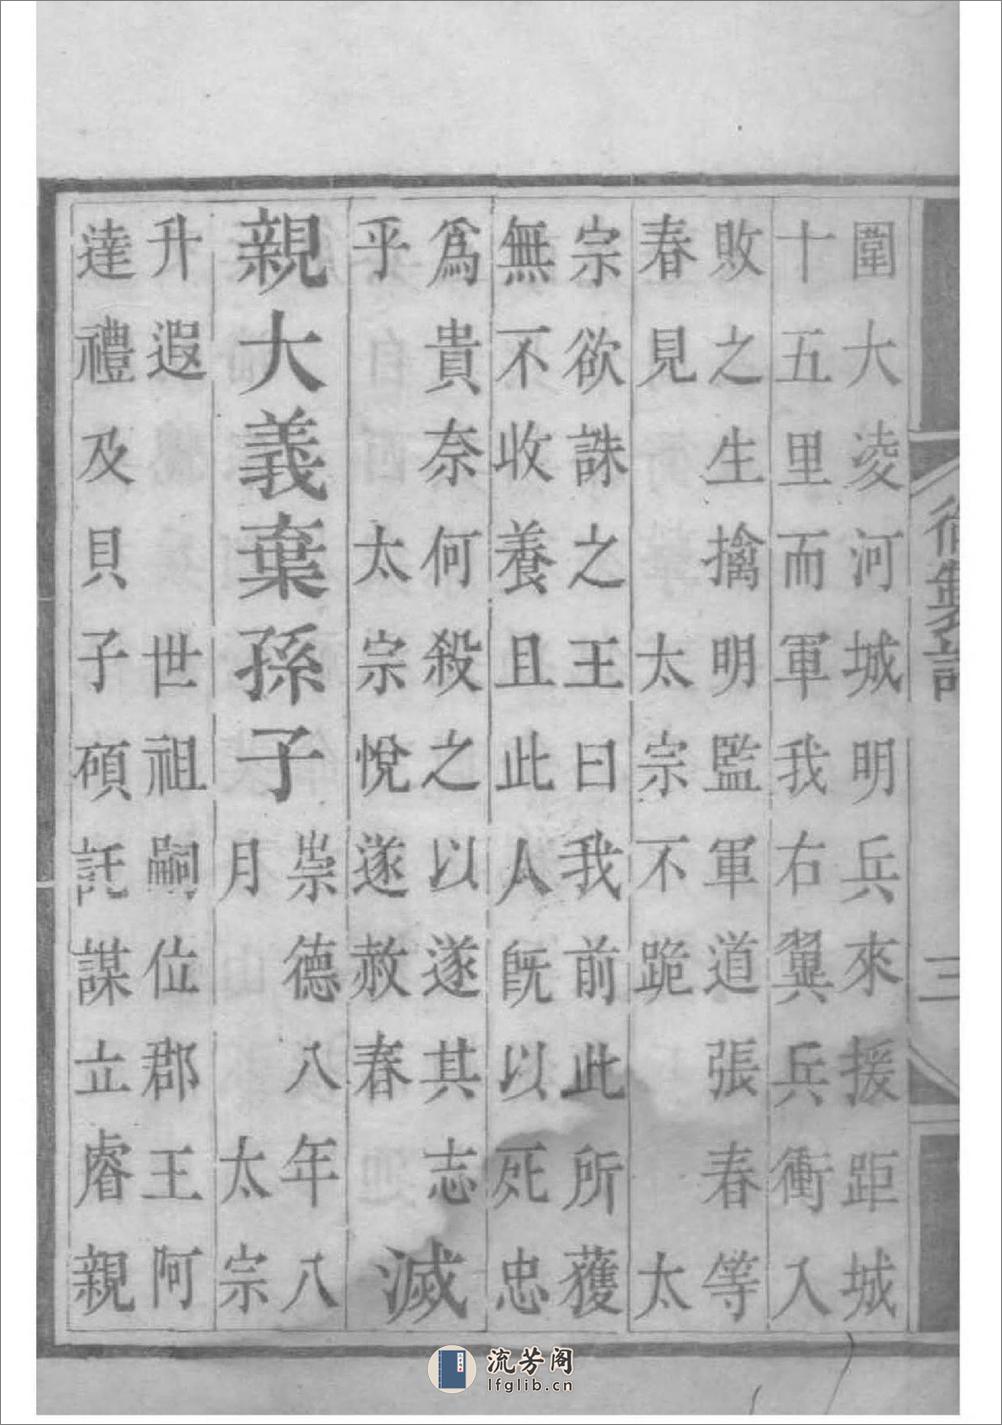 圍大凌河城明兵來援距城
十五里而軍我右翼兵衝入
敗之生擒明監軍道張春等
春見太宗不跪太
宗欲誅之王曰我前此所獲
無不收養且此人旣以死忠
爲貴奈何殺之以遂其志
乎太宗悅遂赦春
滅
親大義棄孫子
崇德八年八
月太宗
升遐世祖嗣位郡王阿
達禮及貝子碩託謀立睿親
三
流芳阁
lfglib.cn